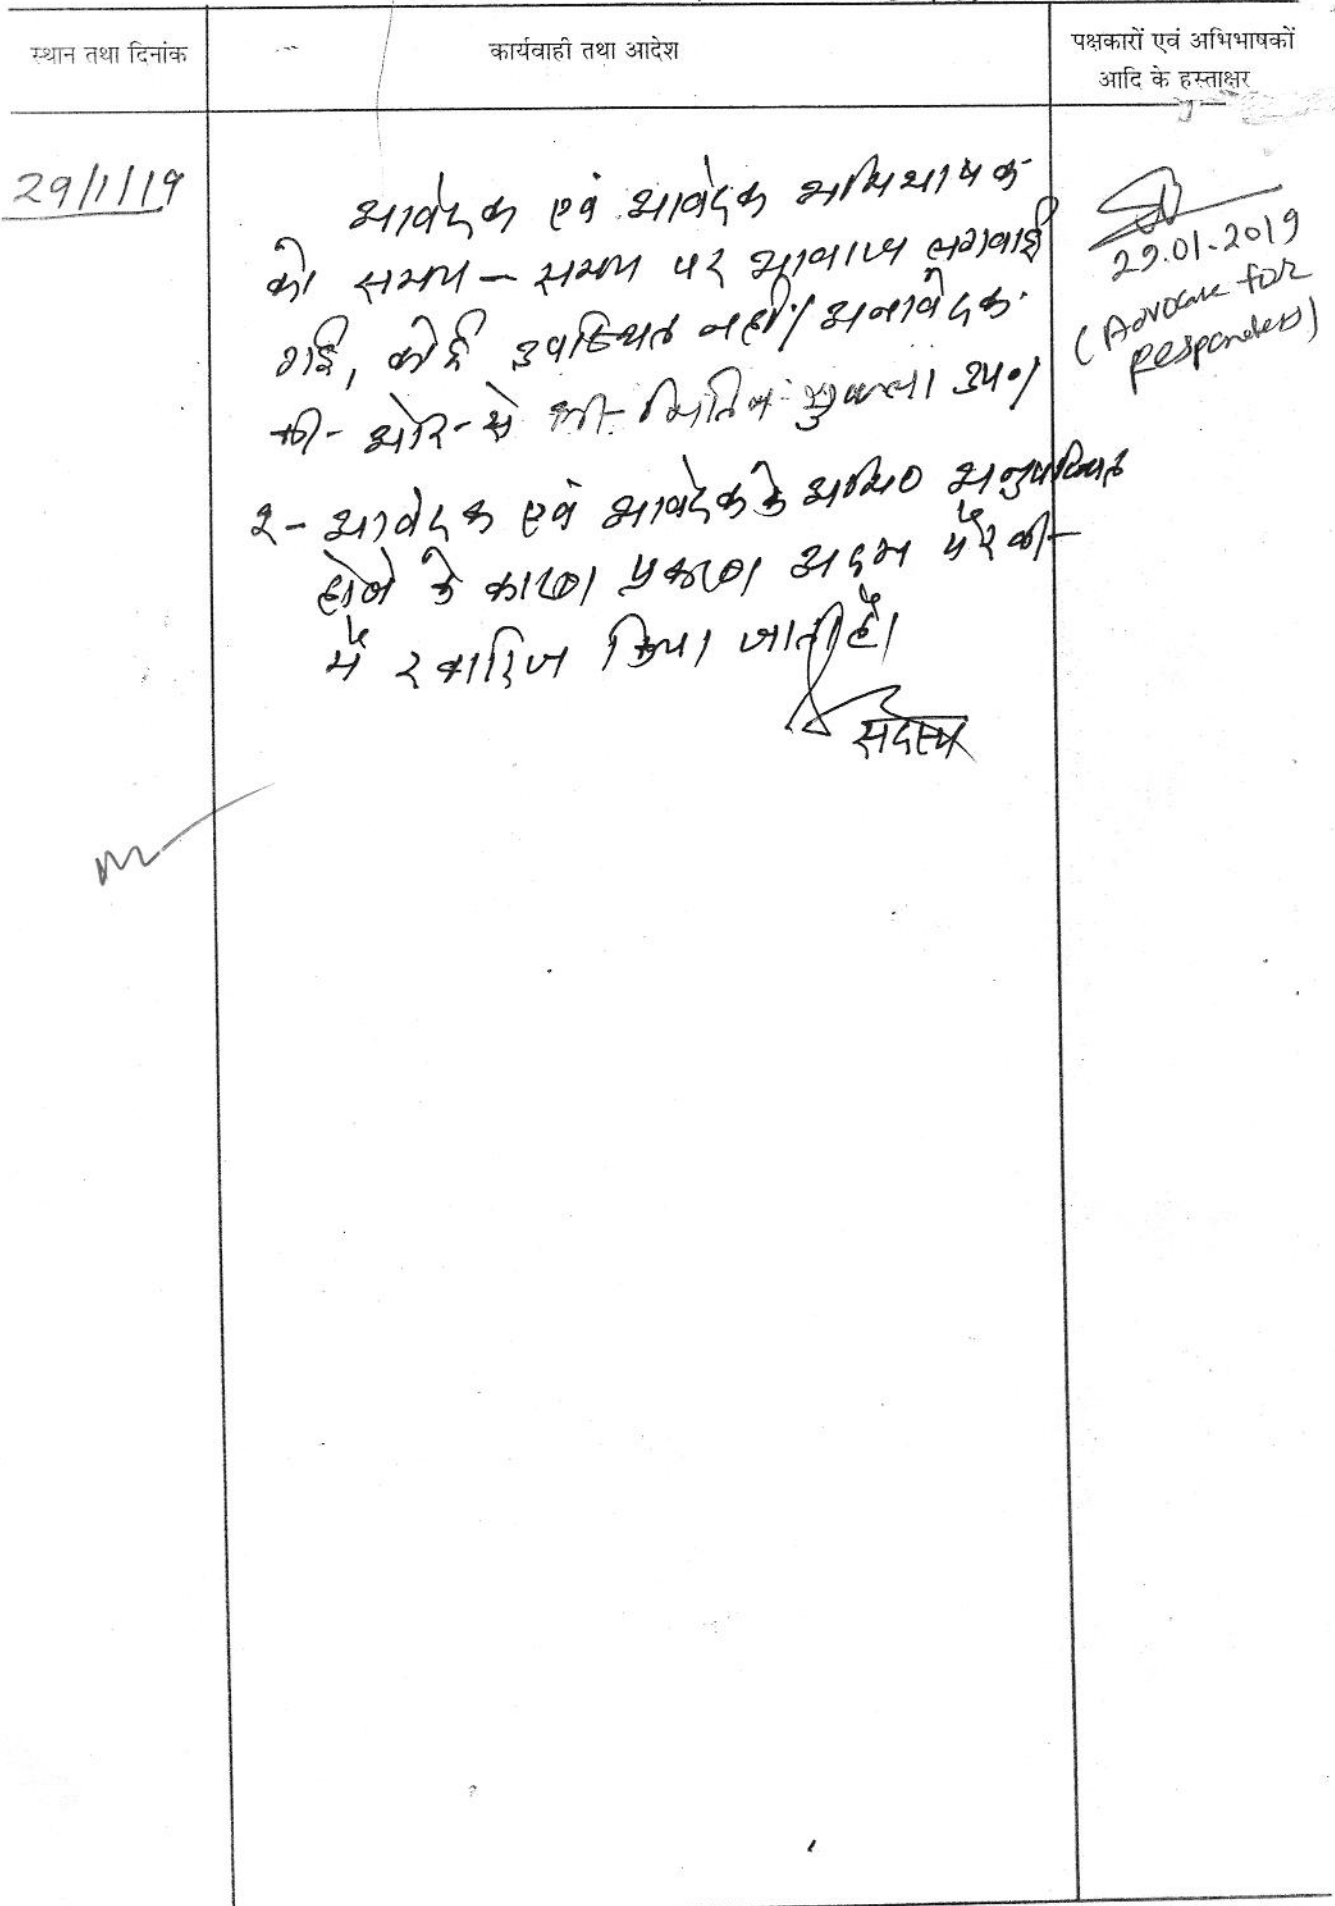 स्थान तथा दिनांक
कार्यवाही तथा आदेश
पक्षकारों एवं अभिभाषकों
आदि के हस्ताक्षर
29/1/19
आवेदक एवं आवेदक अभिभाषक
को समय - समय पर आवाज लगवाई
गई, कोई उपस्थित नहीं। अनावेदक
की ओर से श्री शुक्ला उप०।
२- आवेदक एवं आवेदक के अभि० अनुपस्थित
होने के कारण प्रकरण अदम पैरवी
में खारिज किया जाता है।
सदस्य
29.01.2019
(Advocate for
Respondents)